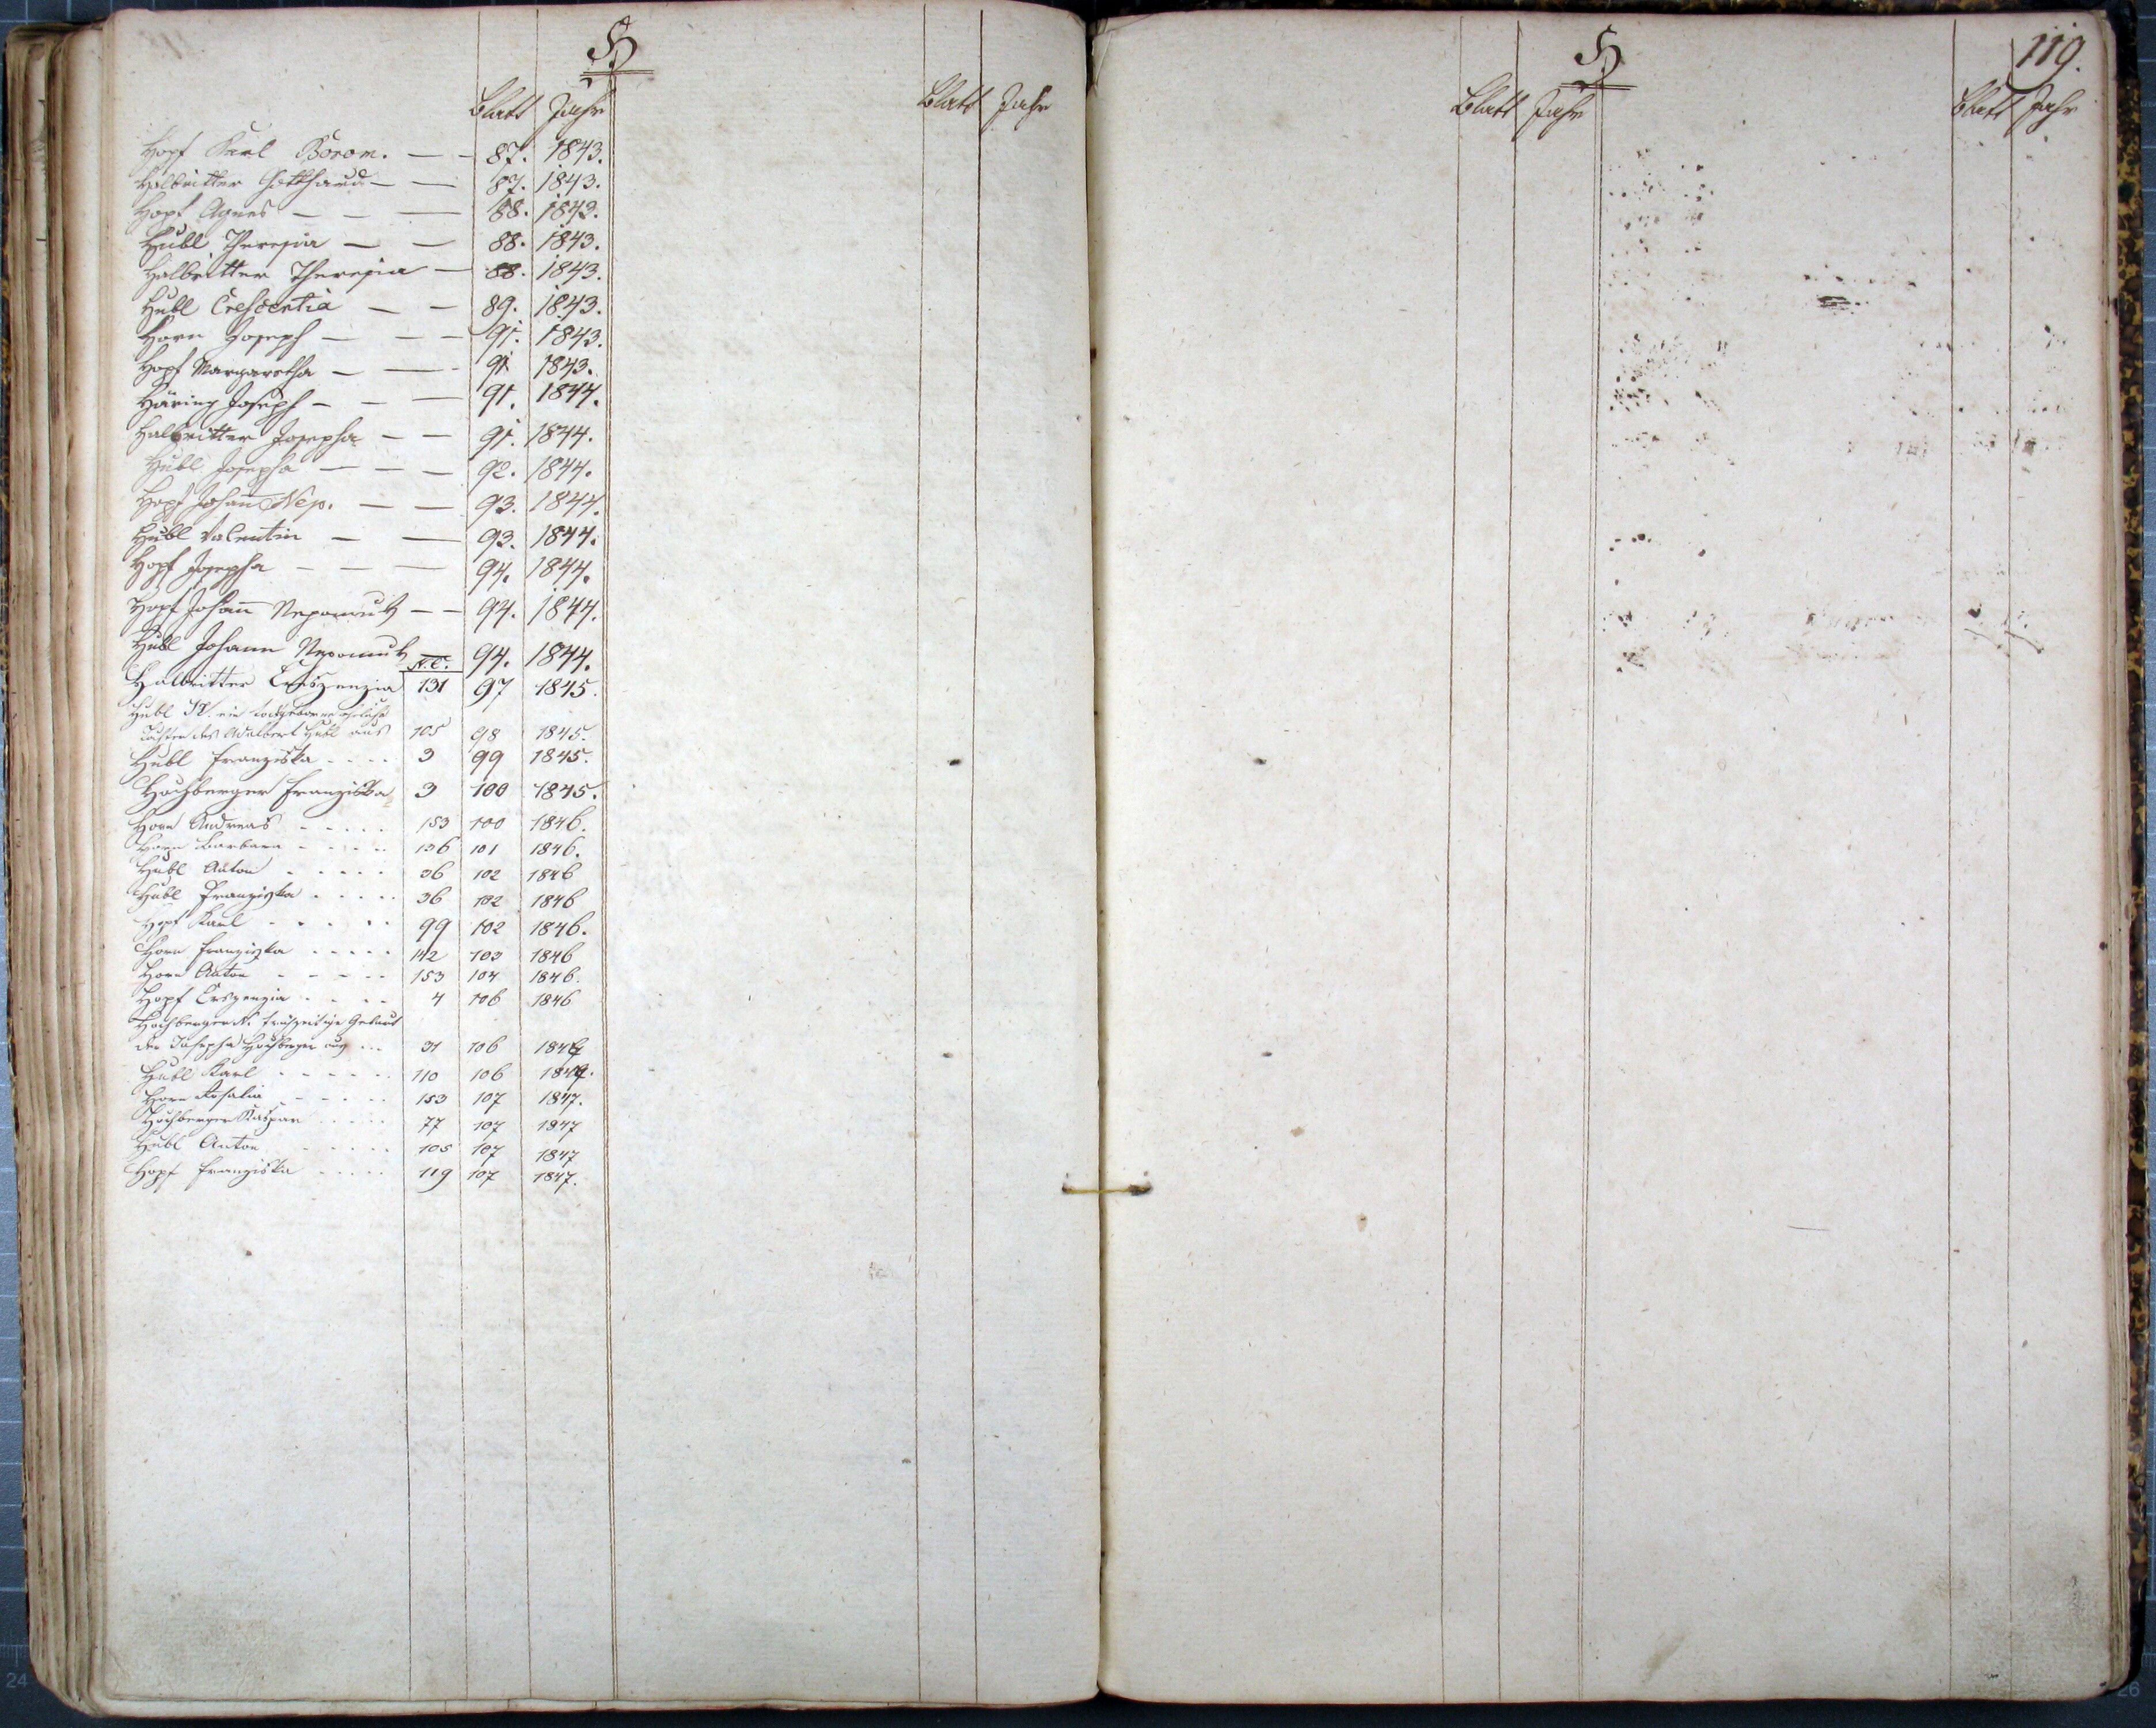 H.
Blatt Jahr
Blatt Jahr
Hopf Karl Borom. — — 87. 1843.
Halbritter Gotthard — — 87. 1843.
Hopf Agnes — — — 88. 1843.
Hubl Theresia — — 88. 1843.
Halbritter Theresia — 88. 1843.
Hubl Crescentia — — 89. 1843.
Horn Joseph — — — 91. 1843.
Hopf Margaretha — — 91 1843.
Häring Joseph — — — 91. 1844.
Halbritter Josepha — — 91. 1844.
Hubl Josepha — — — 92. 1844.
Hopf Johann Nep. — — 93. 1844.
Hubl Valentin — — 93. 1844.
Hopf Josepha — — — 94. 1844.
Hopf Johann Nepomuk — — 94. 1844.
Hubl Johann Nepomuk 94. 1844.
N.C.
Halbritter Creszenzia 131 97 1845.
Hubl N. ein todtgeborne eheliche
Tochter des Adalbert Hubl aus 105 98 1845.
Hubl Franziska - - - - 3 99 1845.
Hochberger Franziska 3 100 1845.
Horn Andreas - - - - - 153 100 1846.
Horn Barbara - - - - - 136 101 1846.
Hubl Anton - - - - - 36 102 1846
Hubl Franziska - - - - - 36 102 1846
Hopf Karl - - - - - 99 102 1846.
Horn Franziska - - - - - 142 103 1846
Horn Anton - - - - - 153 104 1846.
Hopf Creszenzia - - - - 4 106 1846
Hochberger N. frühzeitige Geburt
der Josepha Hochberger aus ... 31 106 1846
Hubl Karl - - - - - 110 106 1847.
Horn Rosalia - - - - - 153 107 1847.
Hochberger Kaspar - - - - 77 107 1847
Hubl Anton - - - - - 105 107 1847
Hopf Franziska - - - - - 119 107 1847.
H.
119.
Blatt Jahr
Blatt Jahr